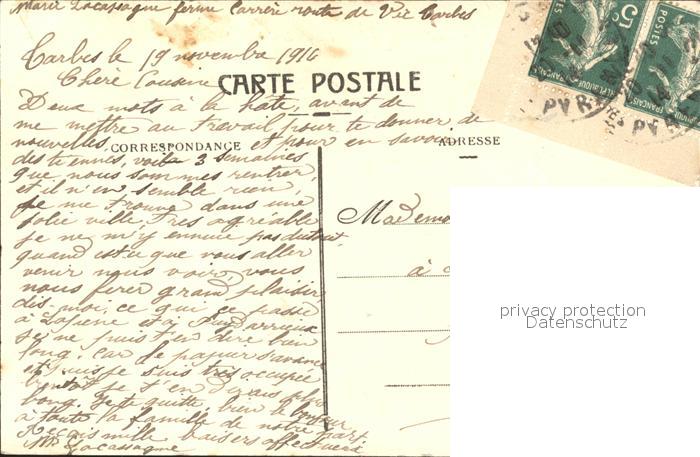 Marie Lacassagne ferme Carrère route de Vic Tarbes
Tarbes le 19 novembre 1910
Chère Cousine
CARTE POSTALE
Deux mots à la hâte, avant de
me mettre au travail pour te donner de
nouvelles, et pour en savoir
CORRESPONDANCE
ADRESSE
des tennes, voila 3 semaines
que nous sommes rentrer,
et il n'en semble rien,
je me trouve dans une
jolie ville, très agréable
je ne m'y ennuie pas du tout,
quand est-ce que vous aller
venir nous voir, vous
nous ferez grand plaisir
dis-moi, ce que ce passe
à et à
je ne puis t'en dire bien
long, car le papier s'avance
et puis je suis très occupée
bientôt je t'en dirais plus
long. Je te quitte, bien le bonjour
à toute la famille de notre part
Reçois mille baisers affectueux
Mie Lacassagne
Mademo
à
5c
POSTES
PYR
PYR
privacy protection
Datenschutz